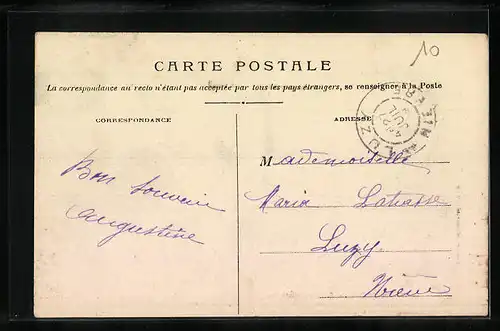 10
CARTE POSTALE
La correspondance au recto n'étant pas acceptée par tous les pays étrangers, se renseigner à la Poste
CORRESPONDANCE
ADRESSE
LUZY
NIEVRE
Mademoiselle
Bon Souvenir
Maria
Augustine
Luzy
Nièvre